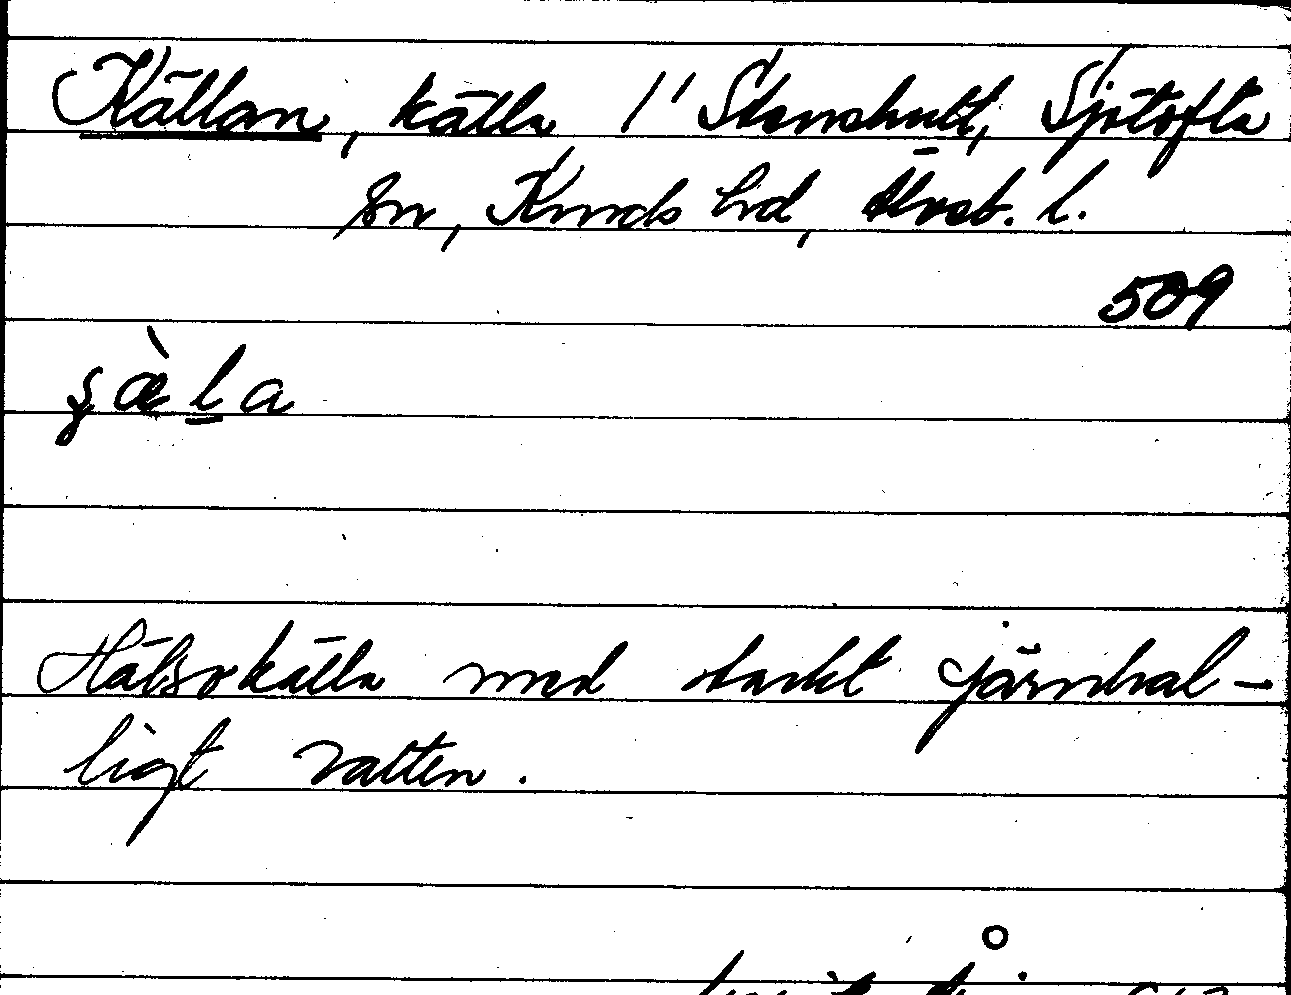 Källan, källa i Stenshult, Sjötofta
sn, Kinds hd, Älvsb. l.
509
Hälsokälla med starkt järnhal-
ligt vatten.